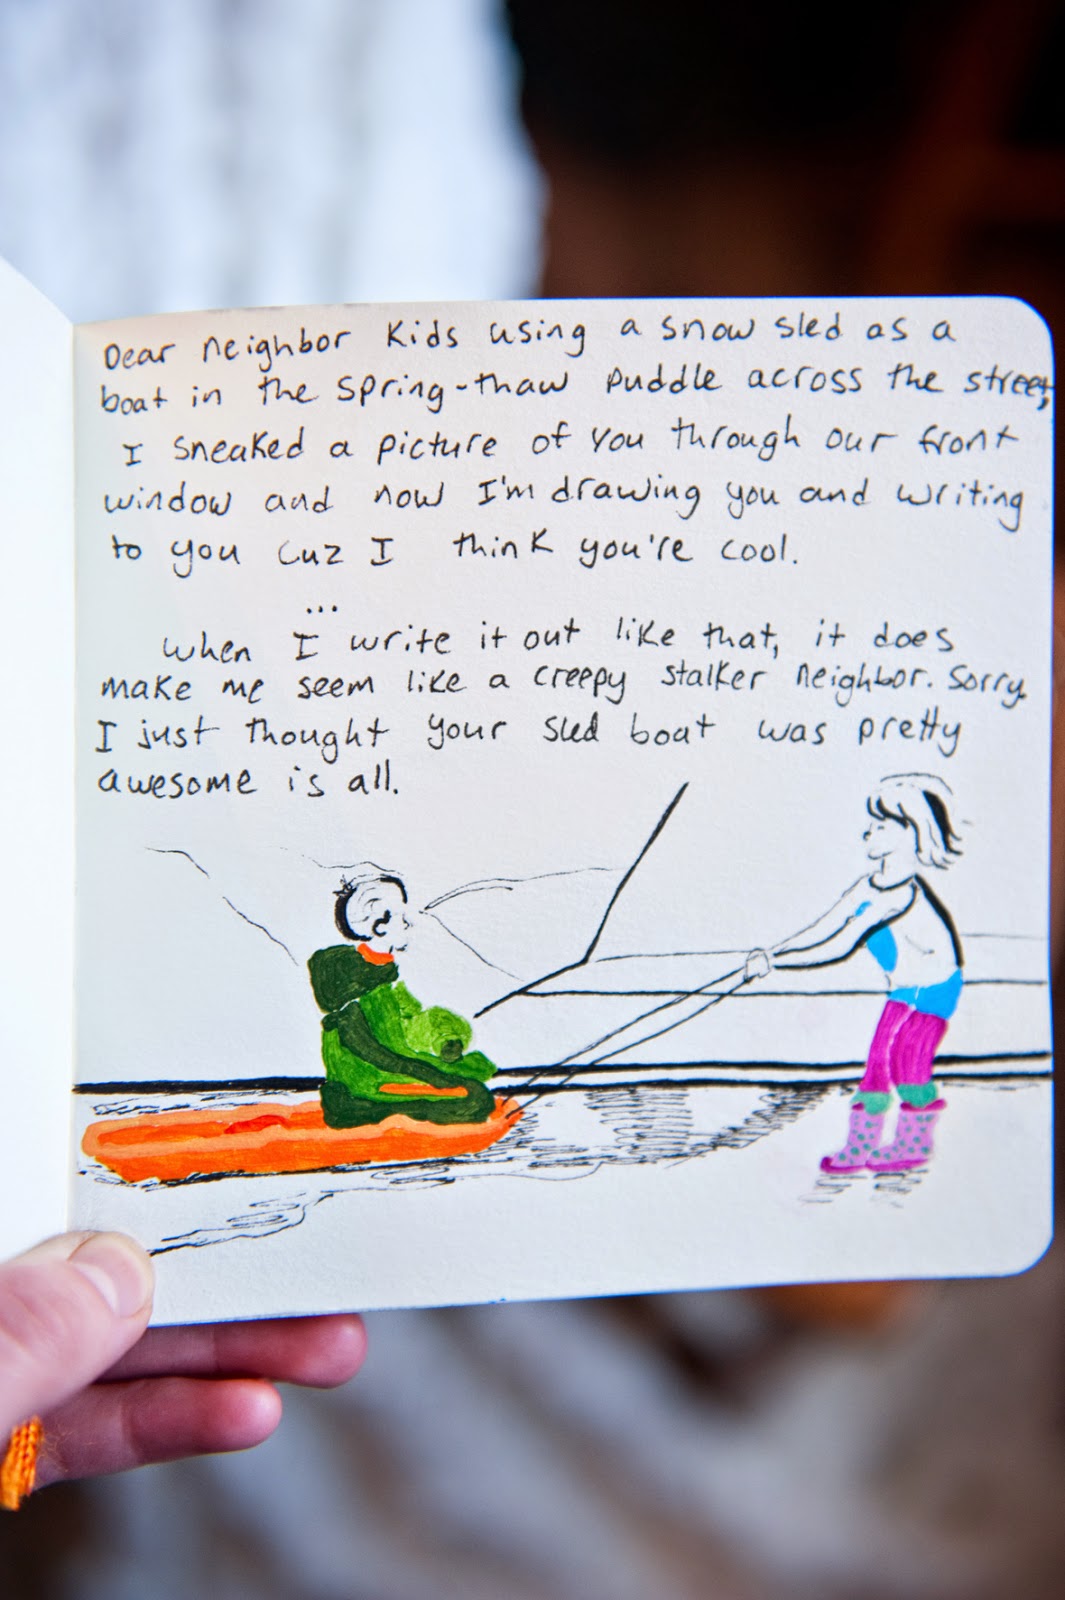 Dear neighbor kids using a snow sled as a
boat in the spring-thaw puddle across the street,
I sneaked a picture of you through our front
window and now I'm drawing you and writing
to you cuz I think you're cool.
...
When I write it out like that, it does
make me seem like a creepy stalker neighbor. Sorry.
I just thought your sled boat was pretty
awesome is all.